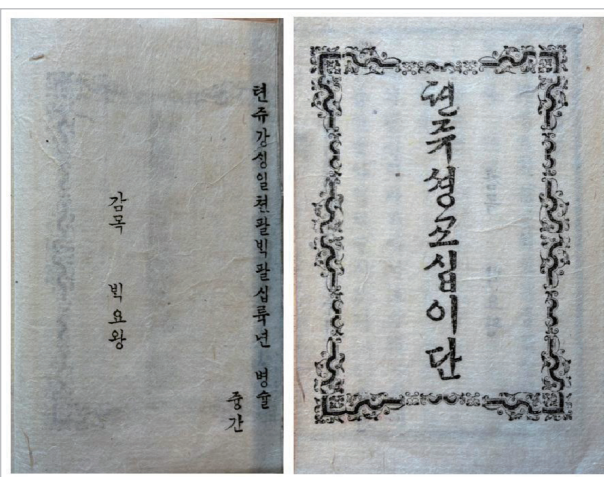 텬쥬셩교십이단
텬쥬강셩일쳔팔빅팔십륙년 병슐
즁간
감목 빅요왕